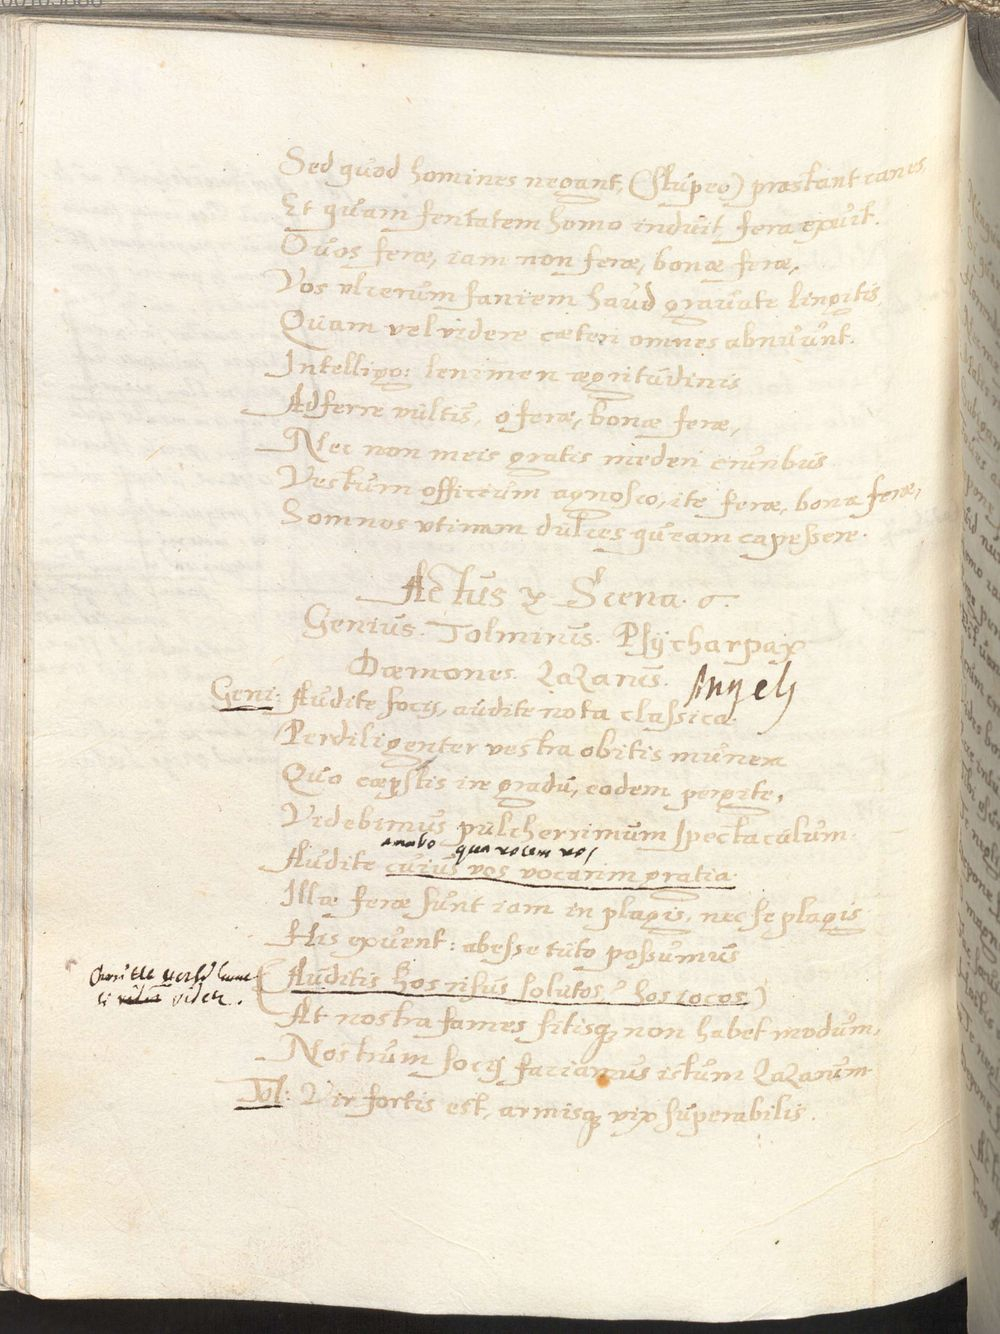 Sed quod homines negant, (stupeo) præstant canes,
Et quam feritatem homo induit, fera exuit.
O vos feræ, iam non feræ, bonæ feræ,
Vos vlcerum saniem haud grauate lingitis,
Quam vel videre cæteri omnes abnuunt.
Intelligo: lenimen ægritudinis
Adferre vultis, o feræ, bonæ feræ,
Nec non meis gratis mederi cruribus
Vestrum officium agnosco, ite feræ, bonæ feræ,
Somnos vtinam dulces queam capessere.
Actus Scena. 6.
Genius. Tolminus. Psycharpax
Dæmones. Lazarus. Angeli
Geni: Audite socij, audite nota classica.
Perdiligenter vestra obitis munera
Quo cæpistis ire gradu, eodem pergite,
Videbimus pulcherrimum spectaculum.
amabo qua vocem vos
Audite cuius vos vocarim gratia.
Illæ feræ sunt iam in plagis, nec se plagis
His exuent: abesse tuto possumus
(Auditis hos risus solutos? hos iocos)
videtur.
At nostra fames sitisq; non habet modum,
Nostrum socij faciamus istum Lazarum
Tol: Vir fortis est, armisq; vix superabilis.